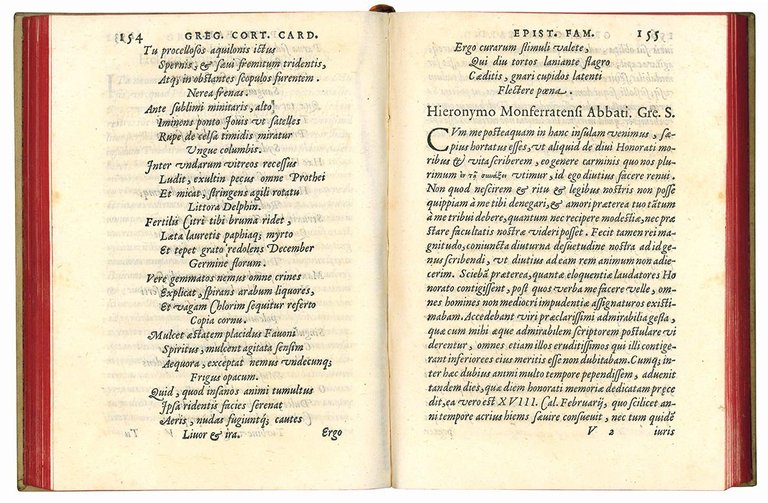 154 GREG. CORT. CARD.
Tu procellosos aquilonis ictus
Spernis, & sæui fremitum tridentis,
Atq; in obstantes scopulos furentem
Nerea frenas.
Ante sublimi minitaris, alto
Iminens ponto Iouis ut satelles
Rupe de celsa timidis miratur
Vngue columbis.
Inter vndarum vitreos recessus
Ludit, exultin pecus omne Prothei
Et micat, stringens agili rotatu
Littora Delphin.
Fertilis Citri tibi bruma ridet,
Læta lauretis paphiaq; myrto
Et tepet grato redolens December
Germine florum.
Vere gemmatos nemus omne crines
Explicat, spirans arabum liquores,
Et vagam Chlorim sequitur referto
Copia cornu.
Mulcet æstatem placidus Fauoni
Spiritus, mulcent agitata sensim
Aequora, exceptat nemus vndecunq;
Frigus opacum.
Quid, quod insanos animi tumultus
Ipsa ridentis facies serenat
Aeris, nudas fugiuntq; cautes
Liuor & ira. Ergo
EPIST. FAM. 155
Ergo curarum stimuli valete,
Qui diu tortos laniante flagro
Cæditis, gnari cupidos latenti
Flectere pœna.
Hieronymo Monferratensi Abbati. Gre. S.
CVm me posteaquam in hanc insulam venimus, sæ-
pius hortatus esses, vt aliquid de diui Honorati mo-
ribus & vita scriberem, eo genere carminis quo nos plu-
rimum ἐν τῇ συνάξει vtimur, id ego diutius facere renui.
Non quod nescirem & ritu & legibus nostris non posse
quippiam à me tibi denegari, & amori præterea tuo tātum
à me tribui debere, quantum nec recipere modestiæ, nec præ
stare facultatis nostræ videri posset. Fecit tamen rei ma-
gnitudo, coniuncta diuturna desuetudine nostra ad id ge-
nus scribendi, vt diutius ad eam rem animum non adie-
cerim. Sciebā præterea, quantæ eloquentiæ laudatores Ho
norato contigissent, post quos verba me facere velle, om-
nes homines non mediocri impudentiæ assignaturos existi-
mabam. Accedebant viri præclarissimi admirabilia gesta,
quæ cum mihi æque admirabilem scriptorem postulare vi
derentur, omnes etiam illos eruditissimos qui illi contige-
rant inferiores eius meritis esse non dubitabam. Cumq; in-
ter hæc dubius animi multo tempore pependissem, aduenit
tandem dies, quæ diem honorati memoriæ dedicatam præce
dit, ea vero est XVIII. Cal. Februarij, quo scilicet an-
ni tempore acrius hiems sæuire consueuit, nec tum quidē
V 2 iuris